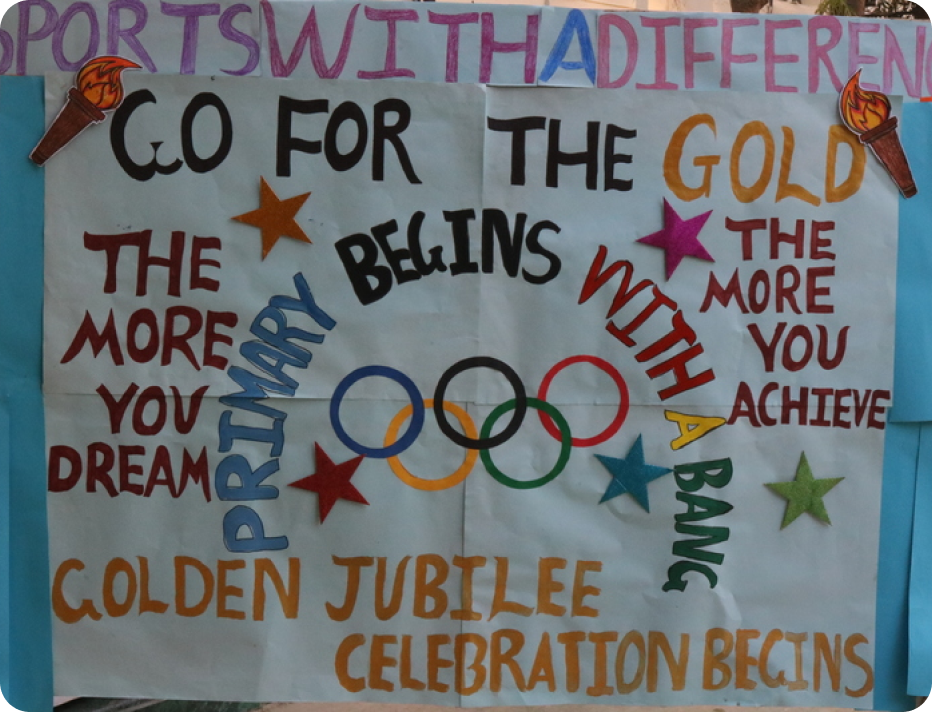 SPORTS WITH A DIFFERENC
GO FOR THE GOLD
THE
MORE
YOU
DREAM
PRIMARY BEGINS WITH A BANG
THE
MORE
YOU
ACHIEVE
GOLDEN JUBILEE
CELEBRATION BEGINS